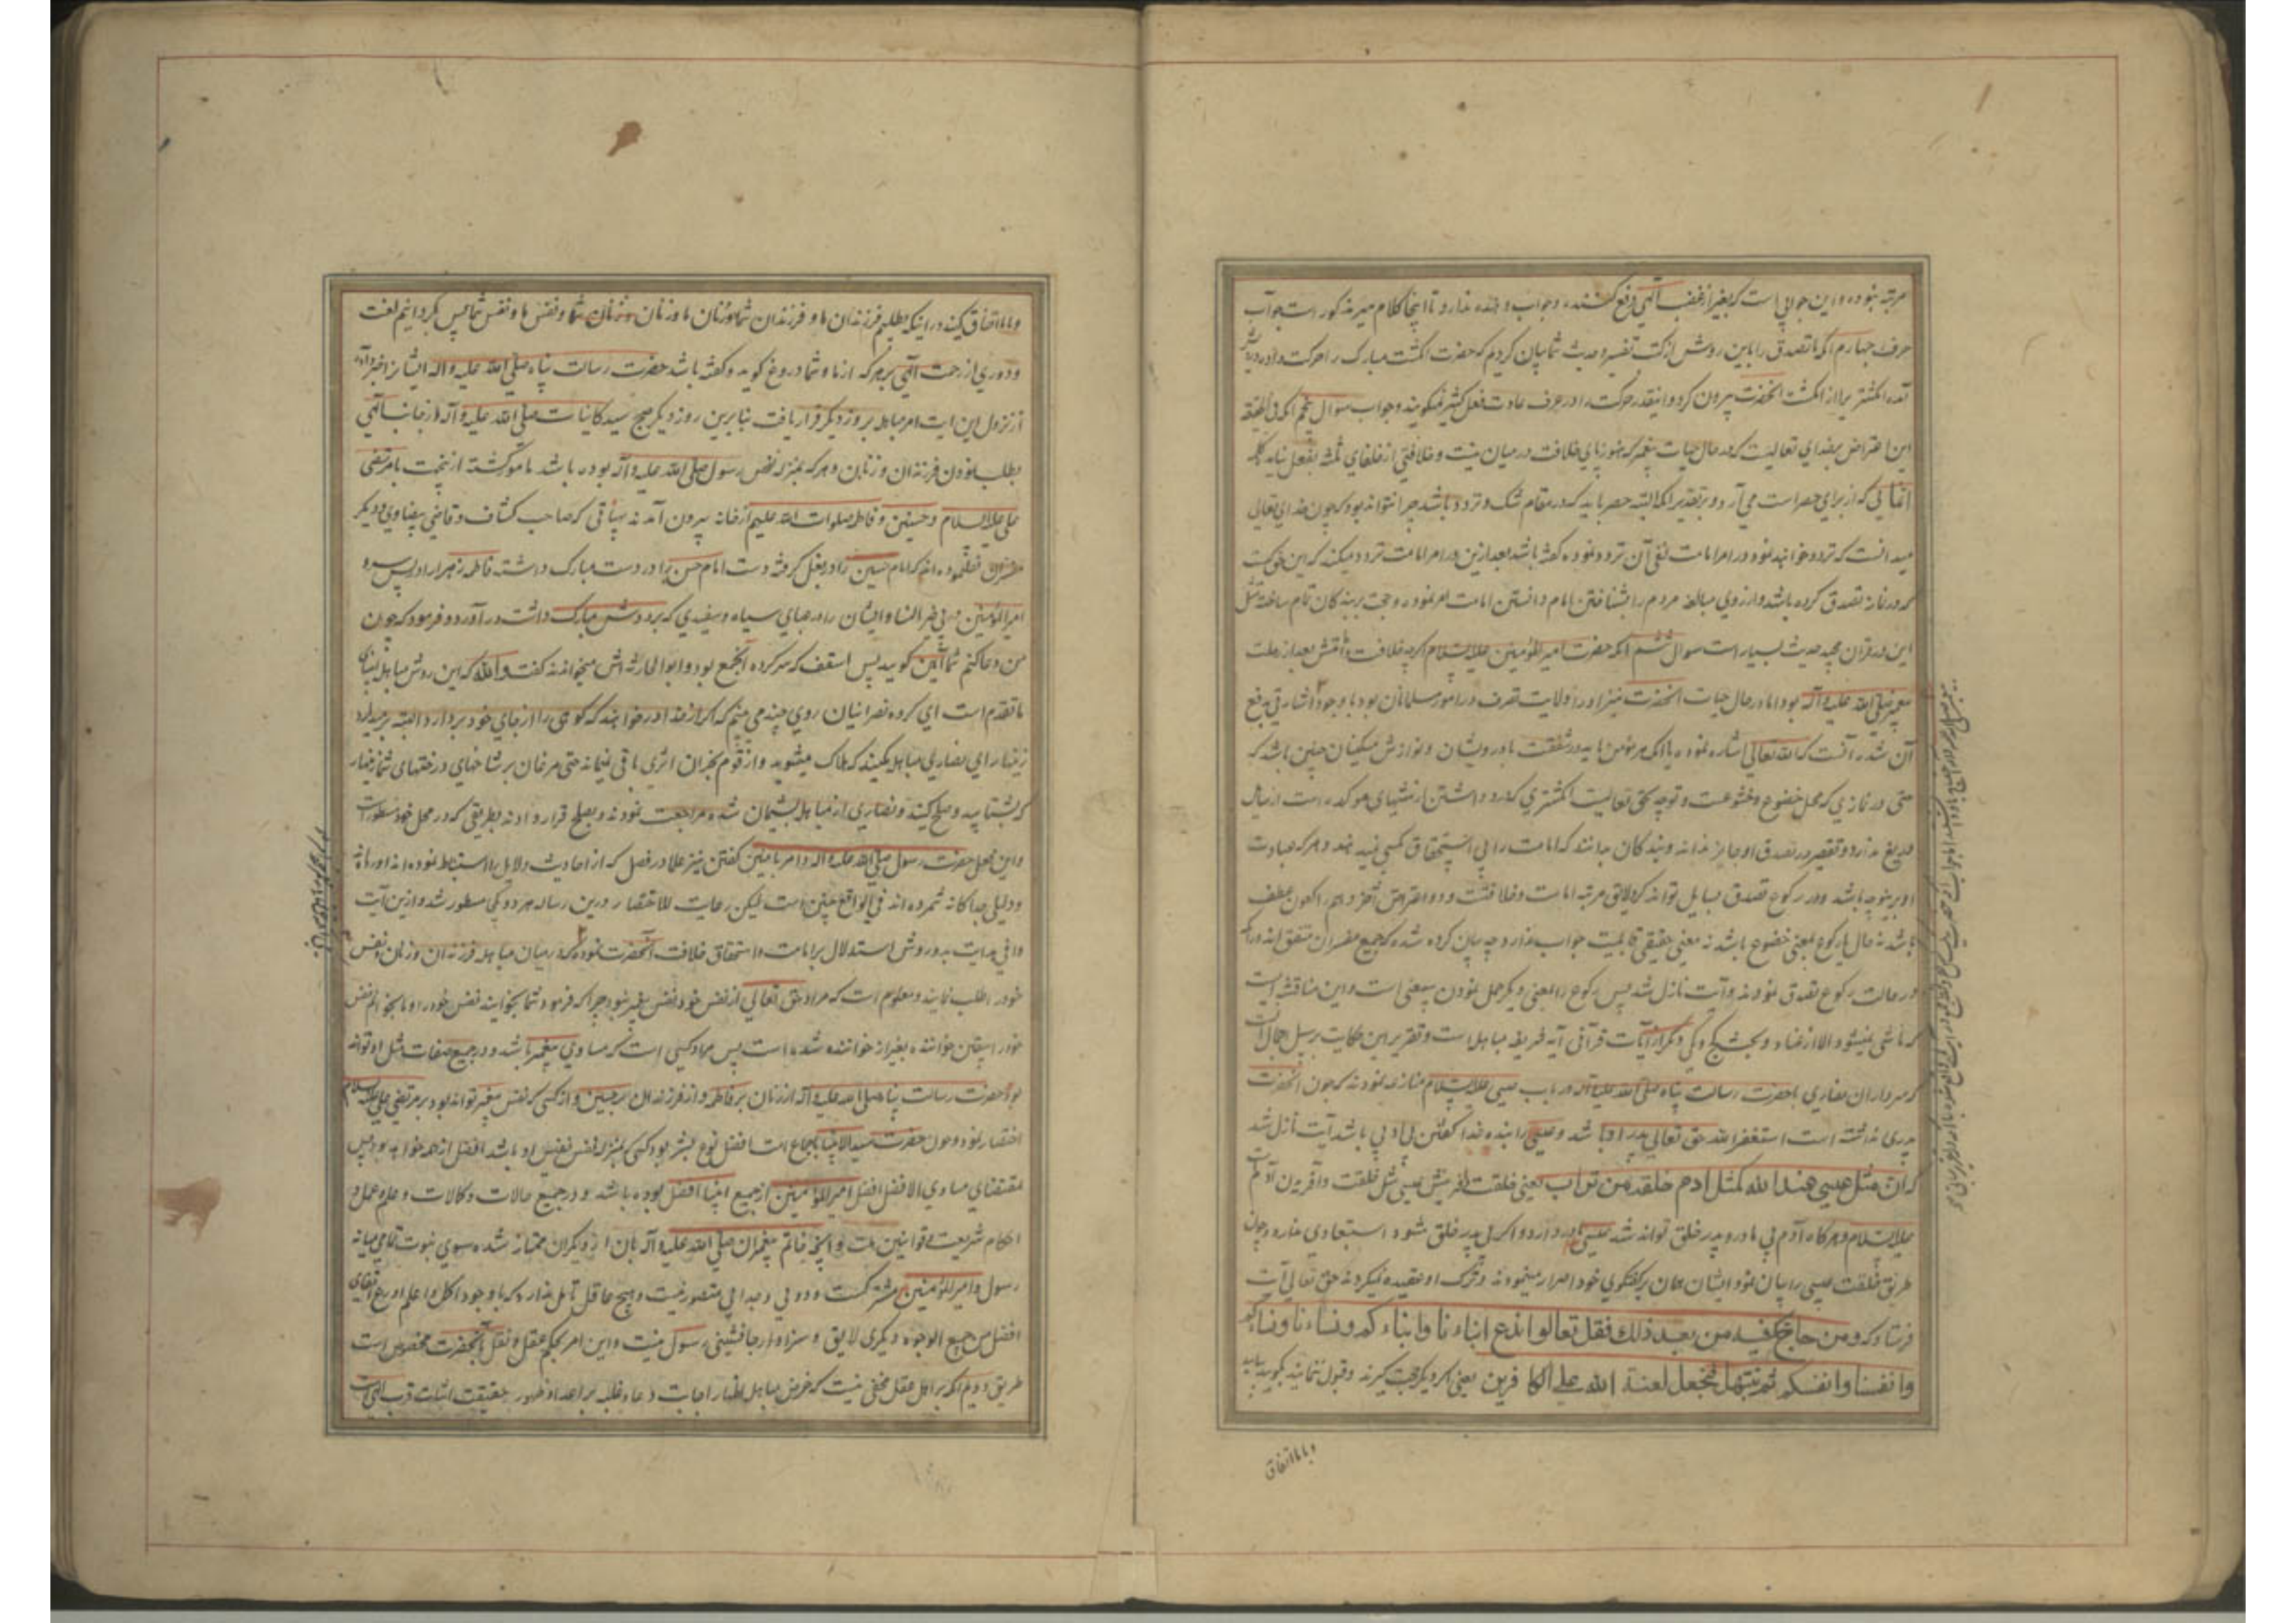 مرتبه نبوده و این جوابی است که بغیر از غضب الهی دفع کننده و جواب دهنده ندارد تا اینجا کلام میر مذکور است جواب
حرف چهارم آنکه ما تصدق را باین روش از کتب تفسیر و حدیث شما بیان کردیم که حضرت انگشت مبارک را حرکت داد و درویش
آمده انگشتر را از انگشت آنحضرت بیرون کرد و اینقدر حرکت را در عرف عادت فعل کثیر نمیگویند و جواب سوال پنجم آنکه فی الحقیقه
این اعتراض بخدای تعالیست که در حال حیات پیغمبر که هنوز پای خلافت در میان نیست و خلافتی از خلفای ثلثه بفعل نیامده کلمه
انما یی که از برای حصر است می آرد و بر تقدیر آنکه البته حصر باید که در مقام شک و تردد باشد چرا نتواند بود که چون خدای تعالی
میدانست که تردد خواهند نمود در امر امامت نفی آن تردد نموده گفته باشد بعد ازین در امر امامت تردد میکنند که این
که در نماز تصدق کرده باشد و از روی مبالغه مردم را بشناختن امام و دانستن امامت امر نموده و حجت بر بندگان تمام ساخته مثل
این در قران مجید و حدیث بسیار است سوال ششم آنکه حضرت امیر المؤمنین علیه السلام اگرچه خلافت و امامتش بعد از رحلت
پیغمبر صلی الله علیه و آله بود اما در حال حیات آنحضرت نیز او را ولایت تصرف در امور مسلمانان بود با وجود
آن شد در آنست که الله تعالی اشاره نموده با آنکه مؤمن باید در شفقت با درویشان و نوازش مسکینان چنین باشد که
حتی در نمازی که محل خضوع و خشوعست و توجه بحق تعالیست انگشتری که در و داشتن از سنتهای موکد است از سایل
دریغ ندارد و تقصیر در تصدق او جایز نداند و بندگان بدانند که امامت را بی استحقاق کسی نمیدهند و هر که عبادت
او برینوجه باشد و در رکوع تصدق بسایل تواند کرد لایق مرتبه امامت و خلافتست و دو اعتراض آخر
باشد نه حال یا رکوع بمعنی خضوع باشد نه معنی حقیقی قابلیت جواب ندارد چه بیان کرده شد که جمیع مفسران متفق اند
در حالت رکوع تصدق نمودند و آیت نازل شد پس رکوع را بمعنی دیگر حمل نمودن بیمعنی است و این مناقشه ایست
که ناشی نمیشود الا از عناد و یکی دیگر از آیات قرآنی آیه شریفه مباهله است و تقریر این حکایت بر سبیل اجمال آنست
که سرداران نصاری با حضرت رسالت پناه صلی الله علیه و آله در باب عیسی علیه السلام منازعه نمودند که چون آنحضرت
پدری نداشته است استغفر الله حق تعالی پدر او باشد و عیسی را بنده خدا گفتن بی ادبی باشد آیت نازل شد
که ان مثل عیسی عند الله کمثل ادم خلقه من تراب یعنی خلقت و آفرینش عیسی مثل خلقت و آفریدن آدم است
علیه السلام و هر گاه آدم بی مادر و پدر خلق تواند شد عیسی که مادر دارد اگر بی پدر خلق شود استبعادی ندارد و چون
طریق خلقت عیسی را بیان نمود ایشان همان بر گفتگوی خود اصرار مینمودند و ترک او عقیده نمیکردند حق تعالی آیت
فرستاد که و من حاجک فیه من بعد ذلک فقل تعالوا ندع ابناءنا و ابناءکم و نساءنا و نساءکم
و انفسنا و انفسکم ثم نبتهل فنجعل لعنة الله علی الکافرین یعنی اگر دیگر حجت گیرند و قبول ننمایند بگوید بیایید
و با ما اتفاق
و با ما اتفاق کنید در اینکه بطلبیم فرزندان ما و فرزندان شما و زنان ما و زنان شما و نفس ما و نفس شما پس بگردانیم لعنت
و دوری از رحمت الهی بر هر که از ما و شما دروغ گوید و گفته باشد حضرت رسالت پناه صلی الله علیه و اله ایشان را خبر داد
از نزول این آیت امر مباهله بروز دیگر قرار یافت بنابرین روز دیگر صبح سید کاینات صلی الله علیه و آله از جانب الهی
بطلب نمودن فرزندان و زنان و هر که بمنزله نفس رسول صلی الله علیه و آله بوده باشد مامور گشته از نخست با مرتضی
علی علیه السلام و حسنین و فاطمه صلوات الله علیهم از خانه بیرون آمدند بسیاقی که صاحب کشاف و قاضی بیضاوی و دیگر
مفسرین نقل نموده اند که امام حسین را در بغل گرفته دست امام حسن را در دست مبارک داشته فاطمه زهرا را در پس سر و
امیر المؤمنین در پی خیر النسا و ایشان را در عبای سیاه و سفیدی که بر دوش مبارک داشت در آورد و فرمود که چون
من دعا کنم شما آمین گویید پس اسقف که سرکرده آنجمع بود و ابو الحارثه اش میخواندند گفت والله که این روش مباهله انبیای
ما تقدم است ای گروه نصرانیان روی چند می بینم که اگر از خدا درخواهند که کوهی را از جای خود بردارد البته بر میدارد
زینهار ای نصاری مباهله مکنید که هلاک میشوید و از قوم نجران اثری باقی نمیماند حتی مرغان بر شاخهای درختهای شما زینهار
که بشتابید و صلح کنید و نصاری از مباهله پشیمان شده مراجعت نمودند و بصلح قرار دادند بطریقی که در محل خود مسطور است
و این فعل حضرت رسول صلی الله علیه و اله و امر بآمین گفتن نیز علما در فصل که از احادیث دلایل را استنباط نموده اند آورده اند
و دلیلی جداگانه شمرده اند فی الواقع چنین است لیکن رعایت للاختصار درین رساله هر دو یکی مسطور شد و ازین آیت
وافی هدایت بدو روش استدلال بر امامت و استحقاق خلافت آنحضرت نموده که در میان مباهله فرزندان و زنان و نفس
خود را طلب نمایند و معلوم است که مراد حق تعالی از نفس خود نفس پیغمبر نبود چرا که فرمود شما بخوانید نفس خود را و ما بخوانیم نفس
خود را یقین خواننده بغیر از خوانده شده است پس مراد کسی است که مساوی پیغمبر باشد و در جمیع صفات مثل او تواند
بود حضرت رسالت پناه صلی الله علیه و آله از زنان بر فاطمه و از فرزندان بر حسنین و از کسی که نفس پیغمبر تواند بود بر مرتضی علی علیه السلام
اختصار نمود و چون حضرت سید الانبیا باجماع امت افضل نوع بشر بود کسی که بمنزله نفس نفیس او باشد افضل از همه خواهد بود پس
مقتضای مساوی الافضل افضل امیر المؤمنین از جمیع انبیا افضل بوده باشد و در جمیع حالات و کمالات و علم و عمل و
احکام شریعت و قوانین ملت و آنچه خاتم پیغمبران صلی الله علیه و آله بان از دیگران ممتاز شده سوی نبوت تمامی میانه
رسول و امیر المؤمنین مشترکست و دویی و جدایی متصور نیست و هیچ عاقل تامل ندارد که با وجود اکمل و اعلم و اورع و اتقای
افضل من جمیع الوجوه دیگری لایق و سزاوار جانشینی رسول نیست و این امر بحکم عقل و نقل بآنحضرت مخصوص است
طریق دویم آنکه بر اهل عقل مخفی نیست که غرض از مباهله اظهار اجابت دعا و غلبه بر اعدا و ظهور حقیقت اثبات قرب الهی است